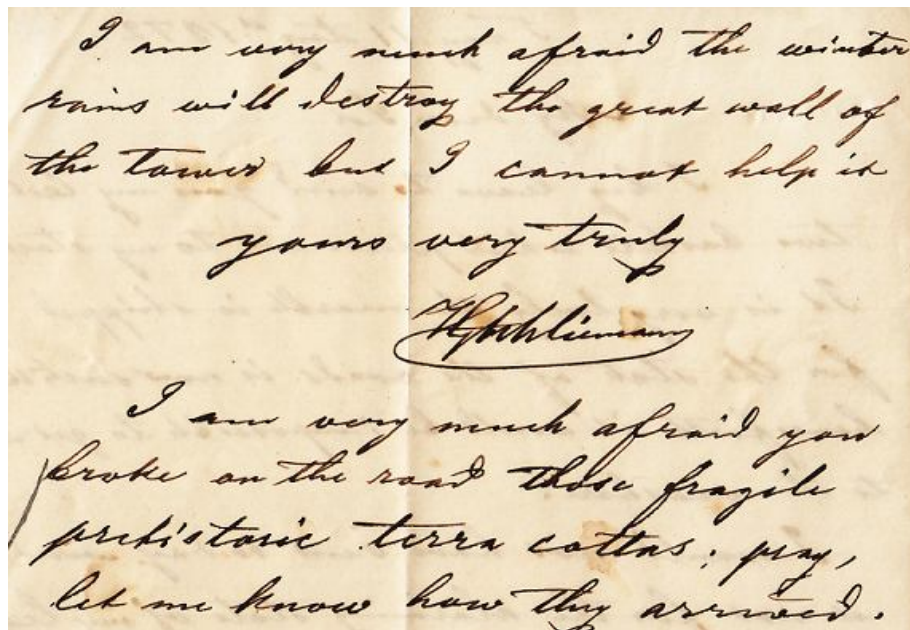 I am very much afraid the winter
rains will destroy the great wall of
the tower but I cannot help it
yours very truly
HySchliemann
I am very much afraid you
broke on the road those fragile
prehistoric terra cottas; pray,
let me know how they arrived.